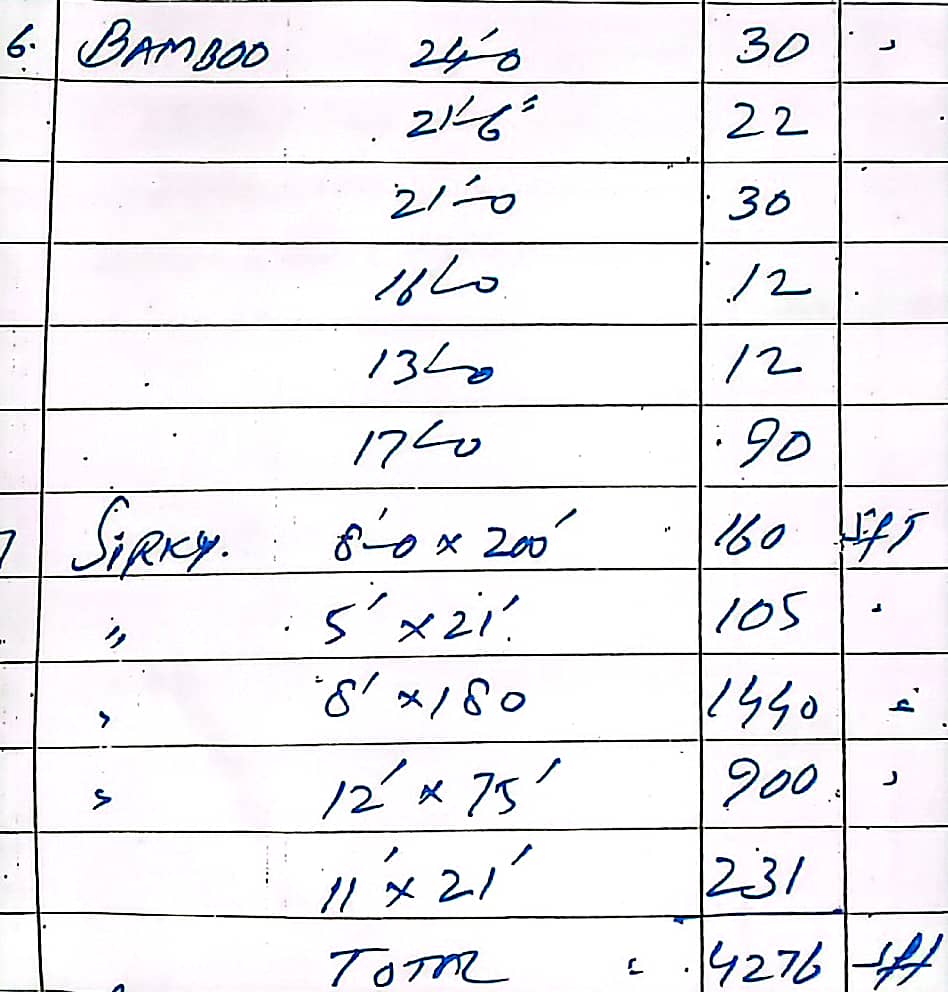 6. BAMBOO 24'-0 30 "
21'-6" 22
21'-0 30
16'-0 12
13'-0 12
17'-0 90
7 SIRKY. 8'-0 x 200' 160 Sft
" 5' x 21' 105 "
" 8' x 180 1440 "
" 12' x 75' 900 "
11' x 21' 231
TOTAL = 4276 Sft